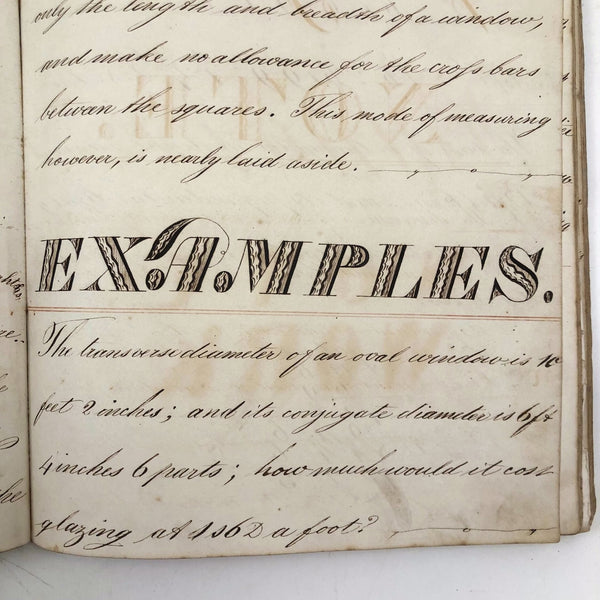 only the length and breadth of a window,
and make no allowance for the crofs bars
betwan the squares. This mode of measuring
however, is nearly laid aside.
EXAMPLES.
The transverse diameter of an oval window is 10
feet 2 inches; and its conjugate diameter is 6 ft
4 inches 6 parts; how much would it cost
glazing at 1s6D a foot?